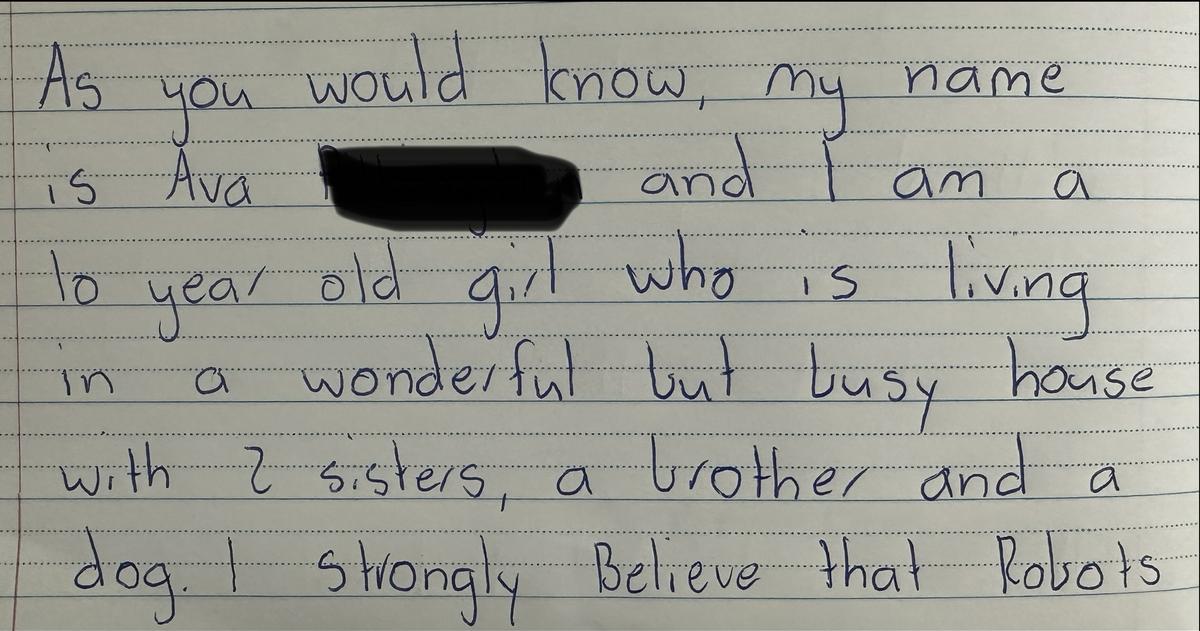 As you would know, my name
is Ava and I am a
10 year old girl who is living
in a wonderful but busy house
with 2 sisters, a brother and a
dog. I strongly Believe that Robots